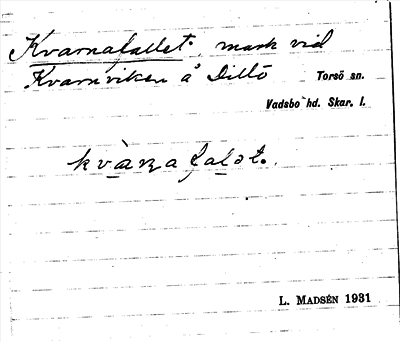 Kvarnafallet, mark vid
Kvarnviken å Dillö Torsö sn.
Vadsbo hd. Skar. l.
kvàrnafalət.
L. MADSÉN 1931